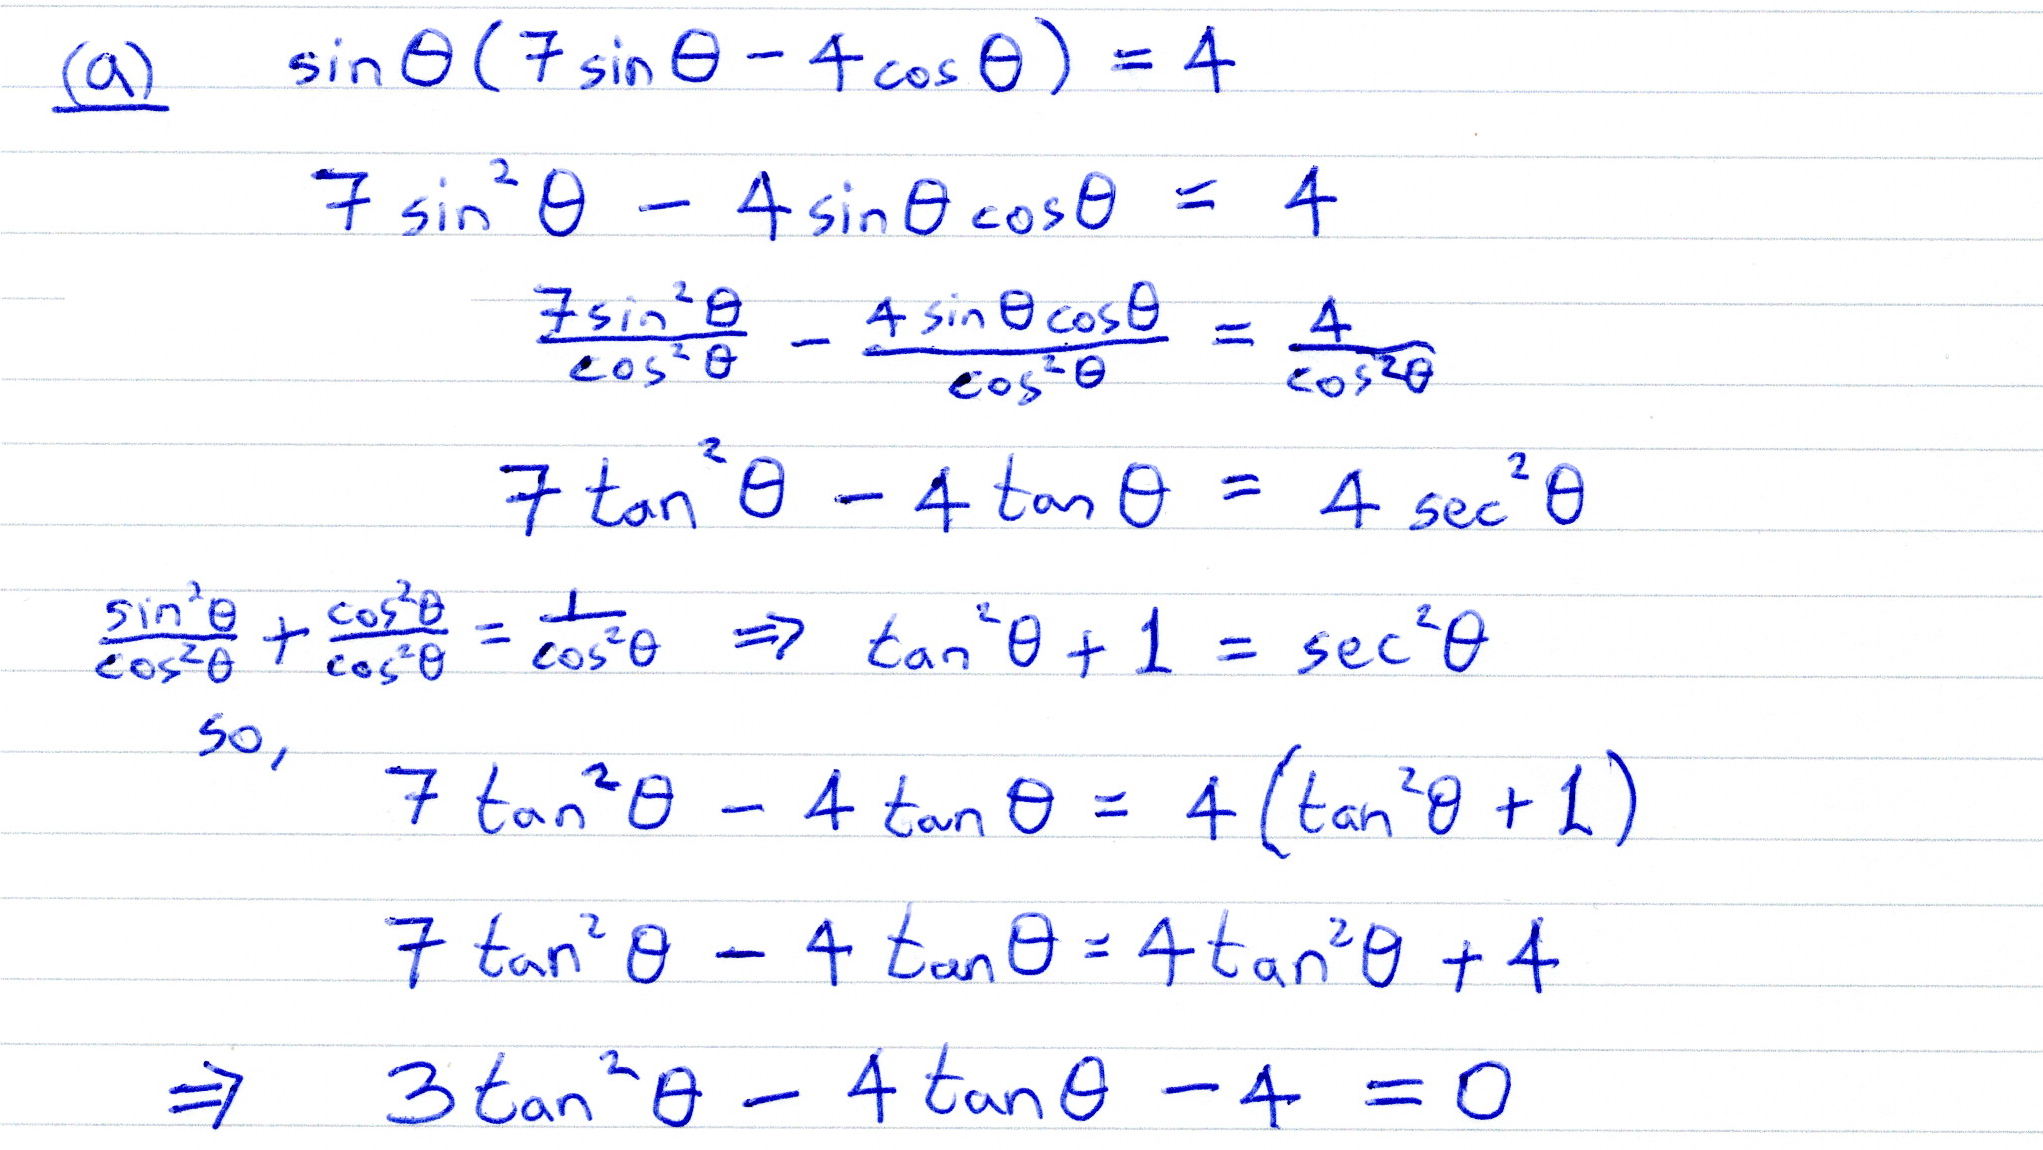 (a) sin θ (7 sin θ - 4 cos θ) = 4
7 sin²θ - 4 sin θ cos θ = 4
7 sin²θ/cos²θ - 4 sin θ cos θ/cos²θ = 4/cos²θ
7 tan²θ - 4 tan θ = 4 sec²θ
sin²θ/cos²θ + cos²θ/cos²θ = 1/cos²θ ⇒ tan²θ + 1 = sec²θ
so,
7 tan²θ - 4 tan θ = 4 (tan²θ + 1)
7 tan²θ - 4 tan θ = 4 tan²θ + 4
⇒ 3 tan²θ - 4 tan θ - 4 = 0